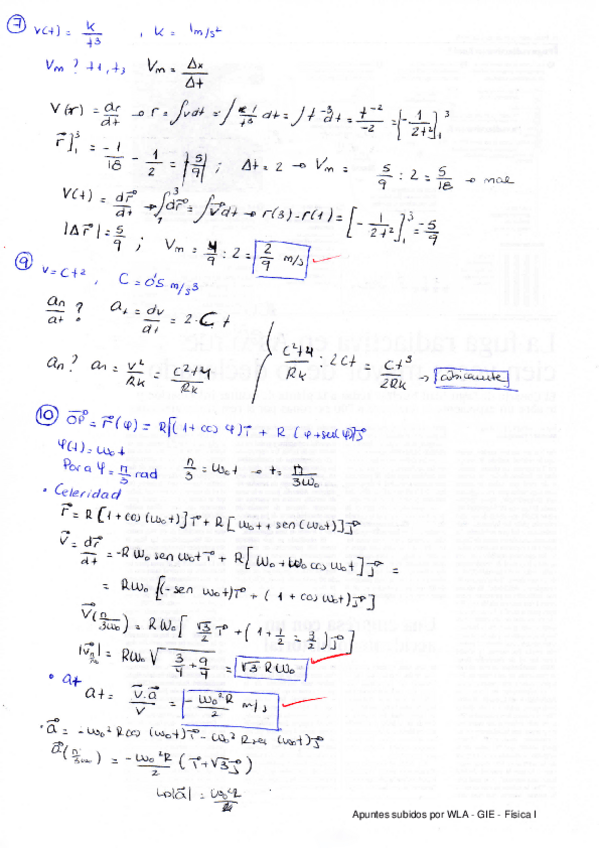 ⑦ v(t) = k/t³ , k = 1 m/s²
Vm ? t1, t3 Vm = Δx/Δt
V(r) = dr/dt → r = ∫vdt = ∫1/t³ dt = ∫t⁻³ dt = t⁻²/-2 = [-1/2t²]₁³
r]₁³ = -1/18 - 1/2 = |5/9| ; Δt = 2 → Vm = 5/9 : 2 = 5/18 → mal
V(t) = dr/dt → ∫₁³ dr = ∫v dt → r(3) - r(1) = [-1/2t²]₁³ = -5/9
|Δr| = 5/9 ; Vm = 4/9 : 2 = 2/9 m/s
⑨ v = Ct² , C = 0'5 m/s³
an/at ? at = dv/dt = 2·C t
an? an = v²/Rk = C²t4/Rk
C²t4/Rk : 2Ct = Ct³/2Rk →
⑩ OP = r(φ) = R[(1 + cos φ)i + R (φ + sen φ)j
φ(t) = ω₀t
Para φ = π/3 rad π/3 = ω₀t → t = π/3ω₀
• Celeridad
r = R[1 + cos(ω₀t)]i + R[ω₀t + sen(ω₀t)]j
v = dr/dt = -Rω₀ sen ω₀t i + R[ω₀ + ω₀ cos ω₀t]j =
= Rω₀ [(-sen ω₀t)i + (1 + cos ω₀t)j]
V(π/3ω₀) = Rω₀[√3/2 i + (1 + 1/2 = 3/2)j]
|v| = Rω₀ √3/4 + 9/4 = √3 Rω₀
• at
at = v·a/v = -ω₀²R/2 m/s
• a = -ω₀²R cos(ω₀t)i - ω₀²R sen(ω₀t)j
a(π/3ω₀) = -ω₀²R/2 (i + √3j)
|a| =
Apuntes subidos por WLA - GIE - Física I